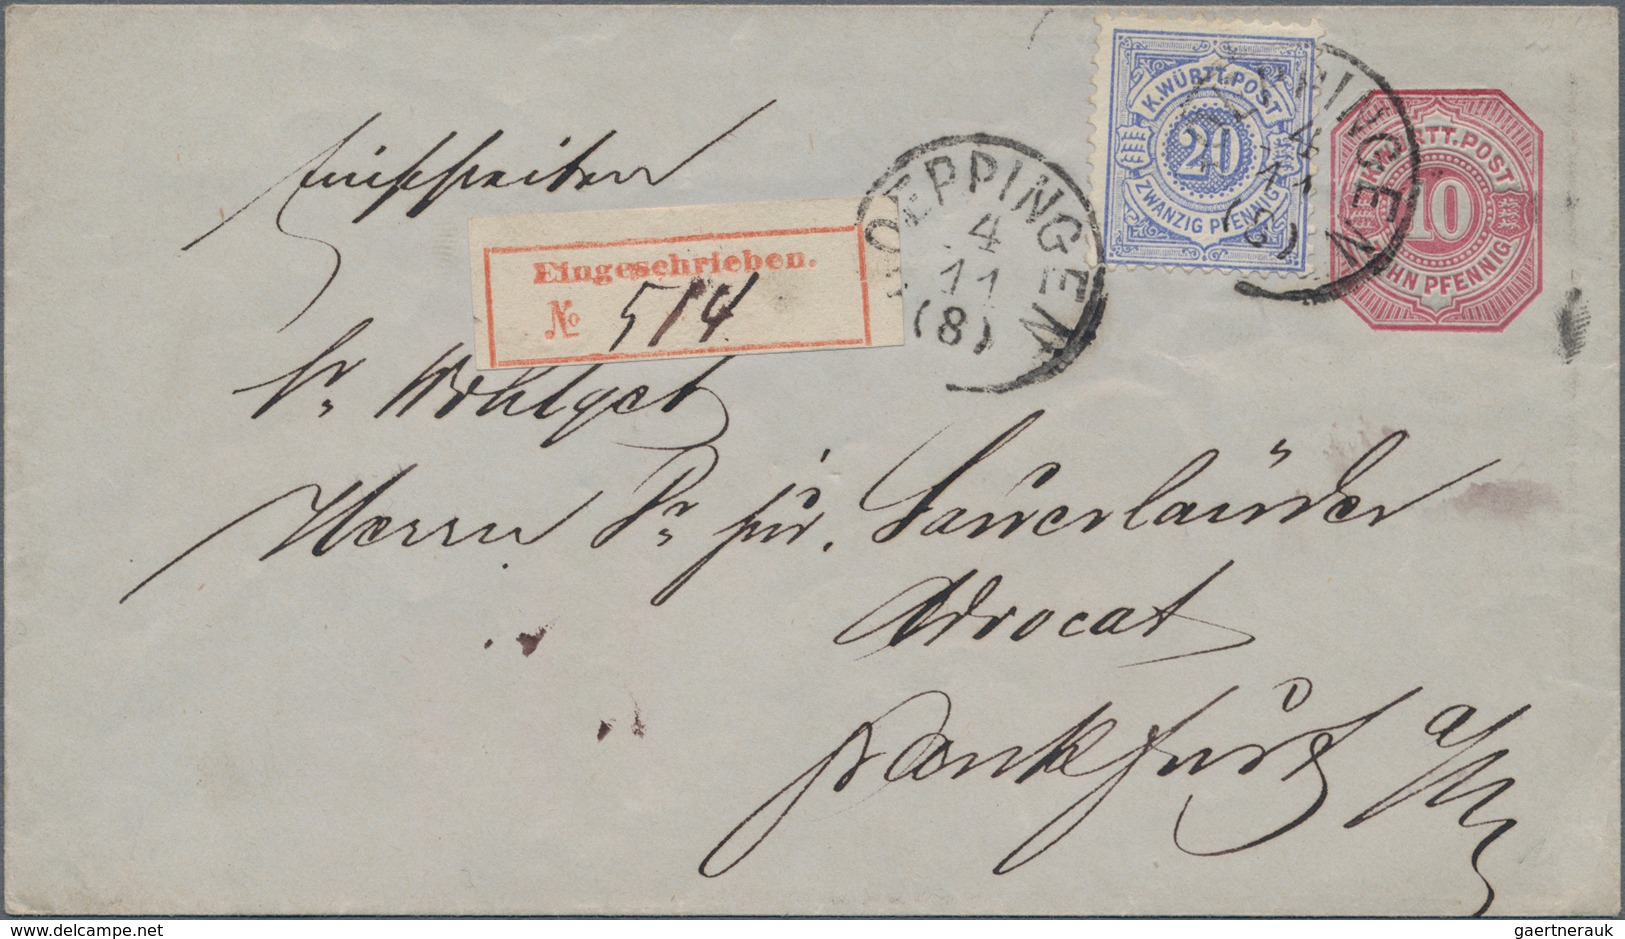 Einschreiben
Eingeschrieben.
№ 514
GOEPPINGEN
4
11
(8)
K.WÜRTT.POST
20
ZWANZIG PFENNIG
PPINGEN
4
11
(8)
K. WÜRTT.POST
10
ZEHN PFENNIG
Sr Wohlgeb
Herrn Dr jur. Sauerländer
Advocat
Frankfurt a/M
www.delcampe.net
gaertnerauk